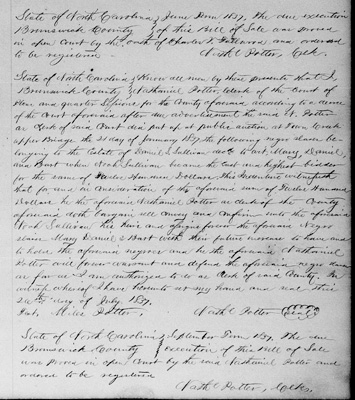 State of North Carolina } June Term 1837. The due execution
Brunswick County } of this Bill of Sale was proved
in open Court by the oath of Charles and ordered
to be registered Nathl Potter, Clk.
State of North Carolina } Know all men by these presents that I,
Brunswick County } Nathaniel Potter, Clerk of the Court of
Pleas and quarter Sessions for the County aforesaid according to a decree
of the Court aforesaid after due advertisement the said N. Potter
as Clerk of said Court did put up at public auction at Town Creek
upper Bridge the day of January 1837 the following negro slaves be-
longing to the Estate of Daniel Sullivan decd to wit, Mary, Daniel,
and Hart when Noah Sullivan became the last and highest bidder
for the sum of Twelve Hundred Dollars. This Indenture witnesseth
that for and in consideration of the aforesaid sum of Twelve Hundred
Dollars he the aforesaid Nathaniel Potter as clerk of the County
aforesaid doth bargain sell convey and confirm unto the aforesaid
Noah Sullivan his heirs and assigns forever the aforesaid Negro
slaves Mary Daniel & Hart with their future increase to have and
to hold the aforesaid negroes and he the aforesaid Nathaniel
Potter will forever warrant and defend the aforesaid negro slaves
as far as I am authorized to do as Clerk of said County. In
witness whereof I have hereunto set my hand and seal this
day of July 1837.
Test, Miles Potter, Nathl Potter (Seal)
State of North Carolina } September Term 1837. The due
Brunswick County } execution of this Bill of Sale
was proved in open Court by the said Nathaniel Potter and
ordered to be registered
Nathl Potter, Clk.